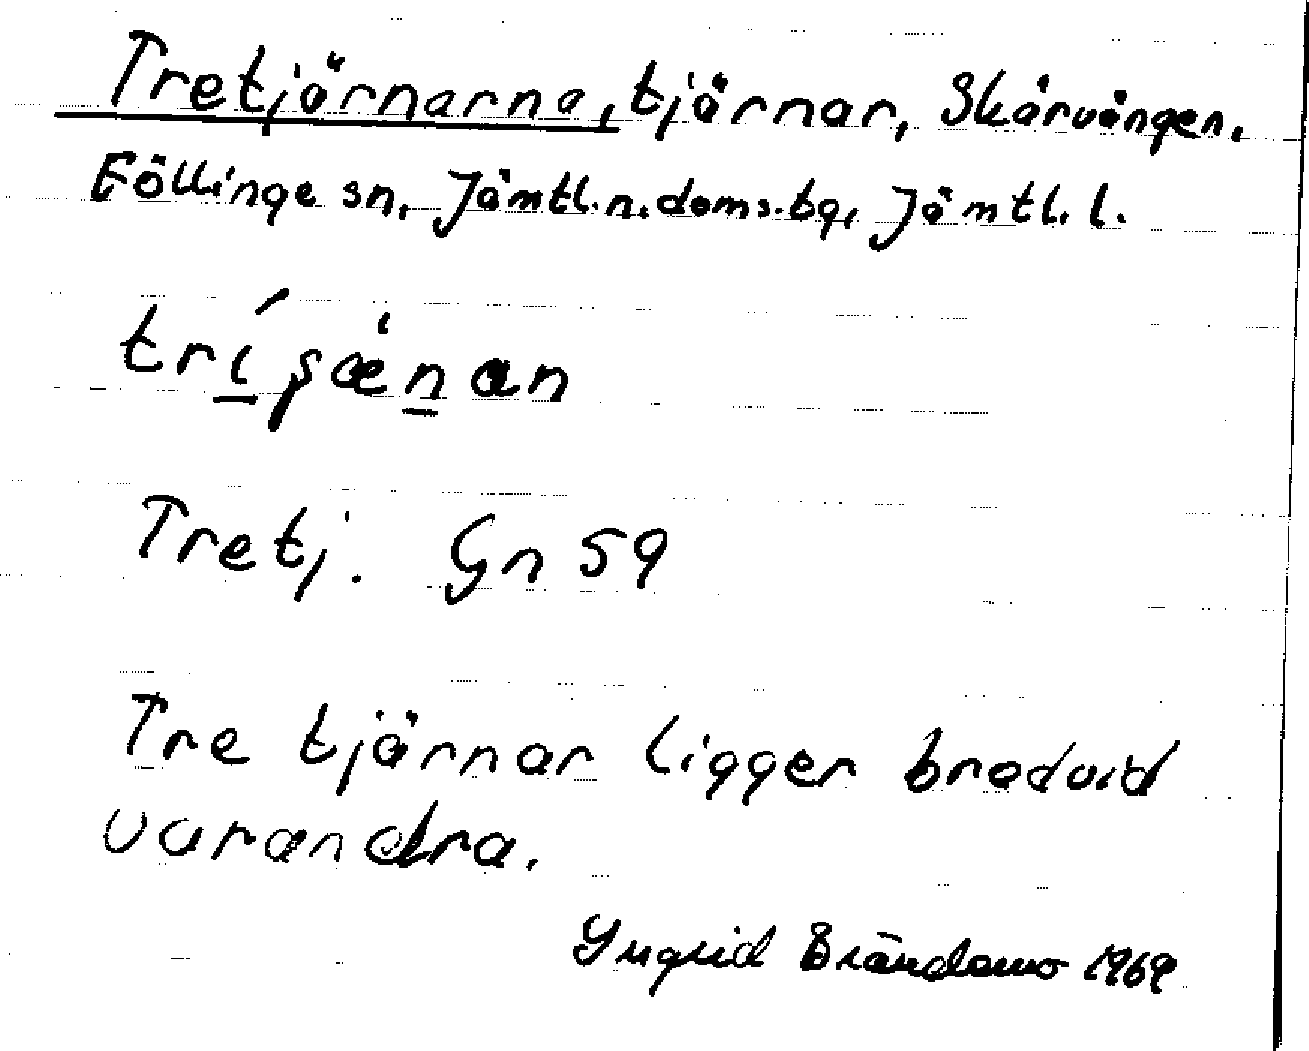 Tretjärnarna, tjärnar, Skärvången,
Föllinge sn, Jämtl.n.doms.bg, Jämtl. l.
trí̱ʂæ̀ṉan
Tretj. Gn 59
Tre tjärnar ligger bredvid
varandra.
Ingrid Brändemo 1969